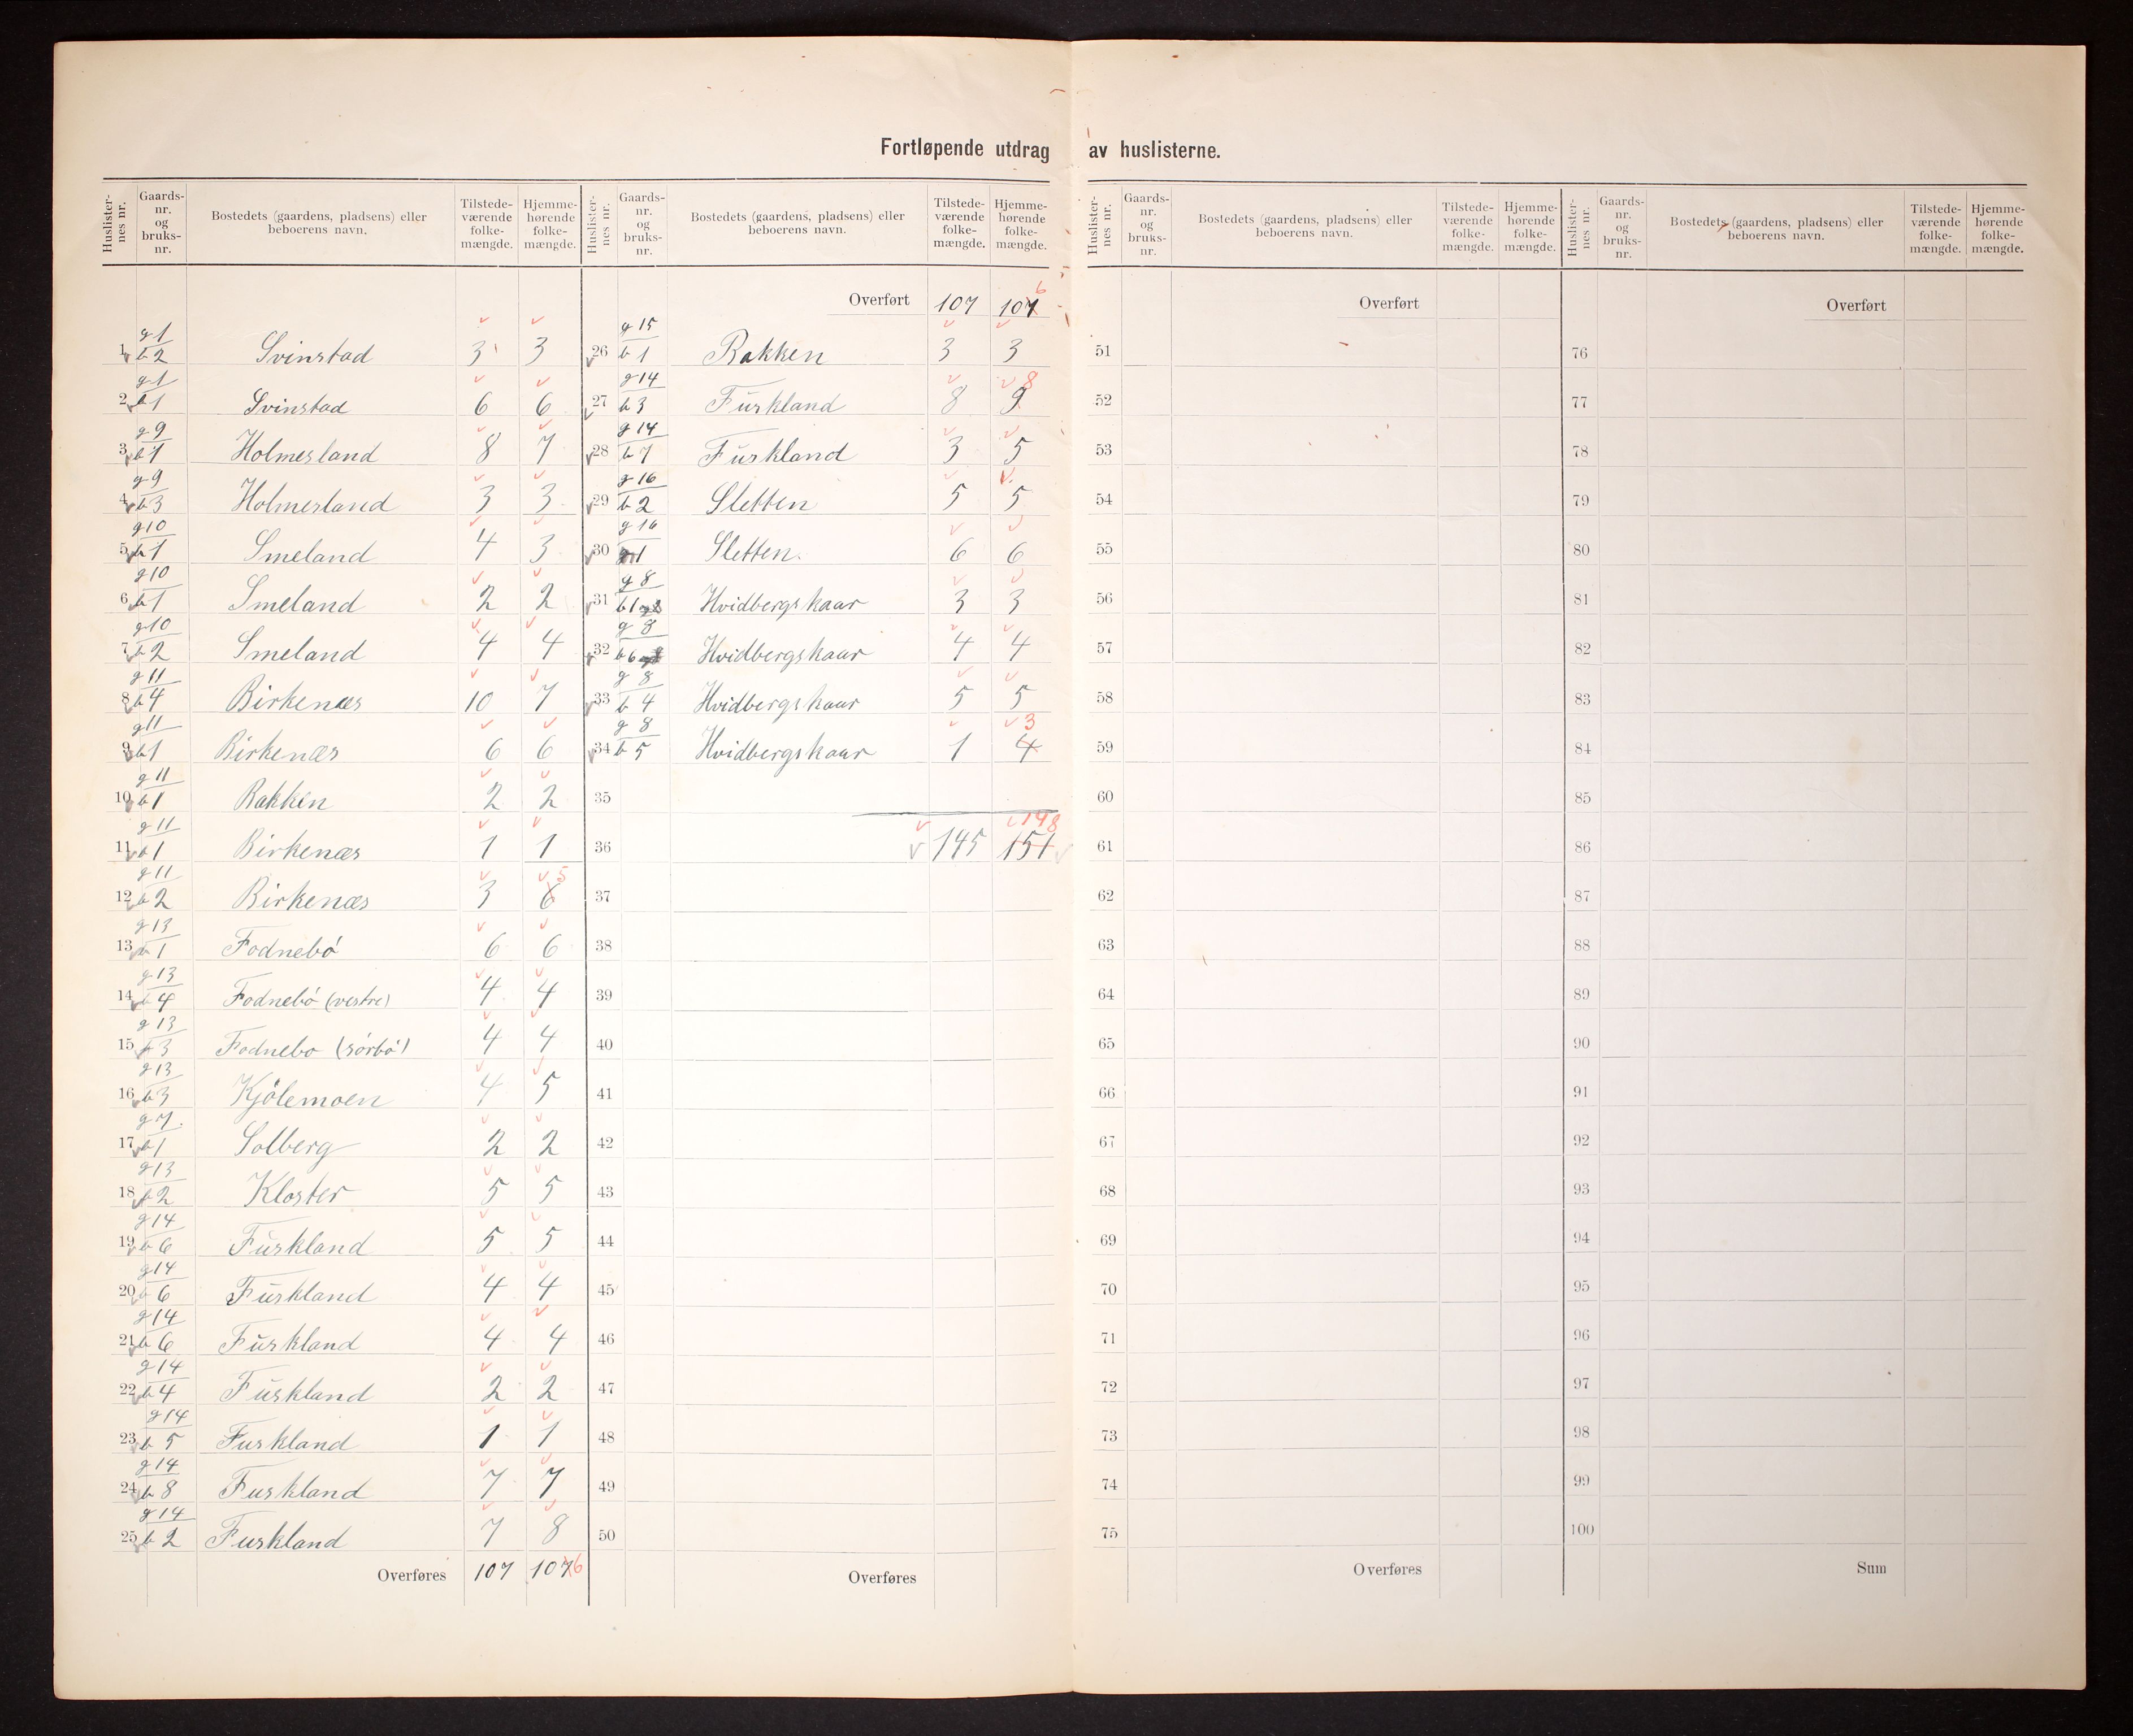 Fortløpende utdrag av huslisterne.
Huslister-nes nr. Gaards-nr. og bruks-nr. Bostedets (gaardens, pladsens) eller beboerens navn. Tilstede-værende folke-mængde. Hjemme-hørende folke-mængde.
1 g 1 b 2 Svinstad 3 3
2 g 1 b 1 Svinstad 6 6
3 g 9 b 1 Holmesland 8 7
4 g 9 b 3 Holmesland 3 3
5 g 10 b 1 Smeland 4 3
6 g 10 b 1 Smeland 2 2
7 g 10 b 2 Smeland 4 4
8 g 11 b 4 Birkenæs 10 7
9 g 11 b 1 Birkenæs 6 6
10 g 11 b 1 Bakken 2 2
11 g 11 b 1 Birkenæs 1 1
12 g 11 b 2 Birkenæs 3 6 5
13 g 13 b 1 Fodnebø 6 6
14 g 13 b 4 Fodnebø (vestre) 4 4
15 g 13 b 3 Fodnebo (sørbø) 4 4
16 g 13 b 3 Kjølemoen 4 5
17 g 7. b 1 Solberg 2 2
18 g 13 b 2 Kloster 5 5
19 g 14 b 6 Fuskland 5 5
20 g 14 b 6 Fuskland 4 4
21 g 14 b 6 Fuskland 4 4
22 g 14 b 4 Fuskland 2 2
23 g 14 b 5 Fuskland 1 1
24 g 14 b 8 Fuskland 7 7
25 g 14 b 2 Fuskland 7 8
Overføres 107 107 6
Huslister-nes nr. Gaards-nr. og bruks-nr. Bostedets (gaardens, pladsens) eller beboerens navn. Tilstede-værende folke-mængde. Hjemme-hørende folke-mængde.
Overført 107 107 6
26 g 15 b 1 Bakken 3 3
27 g 14 b 3 Fuskland 8 9 8
28 g 14 b 7 Fuskland 3 5
29 g 16 b 2 Sletten 5 5
30 g 16 1 Sletten. 6 6
31 g 8 b 1 Hvidbergskaar 3 3
32 g 8 b 6 Hvidbergskaar 4 4
33 g 8 b 4 Hvidbergskaar 5 5
34 g 8 b 5 Hvidbergskaar 1 4 3
35
36 145 151 148
37
38
39
40
41
42
43
44
45
46
47
48
49
50
Overføres
Huslister-nes nr. Gaards-nr. og bruks-nr. Bostedets (gaardens, pladsens) eller beboerens navn. Tilstede-værende folke-mængde. Hjemme-hørende folke-mængde.
Overført
51
52
53
54
55
56
57
58
59
60
61
62
63
64
65
66
67
68
69
70
71
72
73
74
75
Overføres
Huslister-nes nr. Gaards-nr. og bruks-nr. Bostedets (gaardens, pladsens) eller beboerens navn. Tilstede-værende folke-mængde. Hjemme-hørende folke-mængde.
Overført
76
77
78
79
80
81
82
83
84
85
86
87
88
89
90
91
92
93
94
95
96
97
98
99
100
Sum